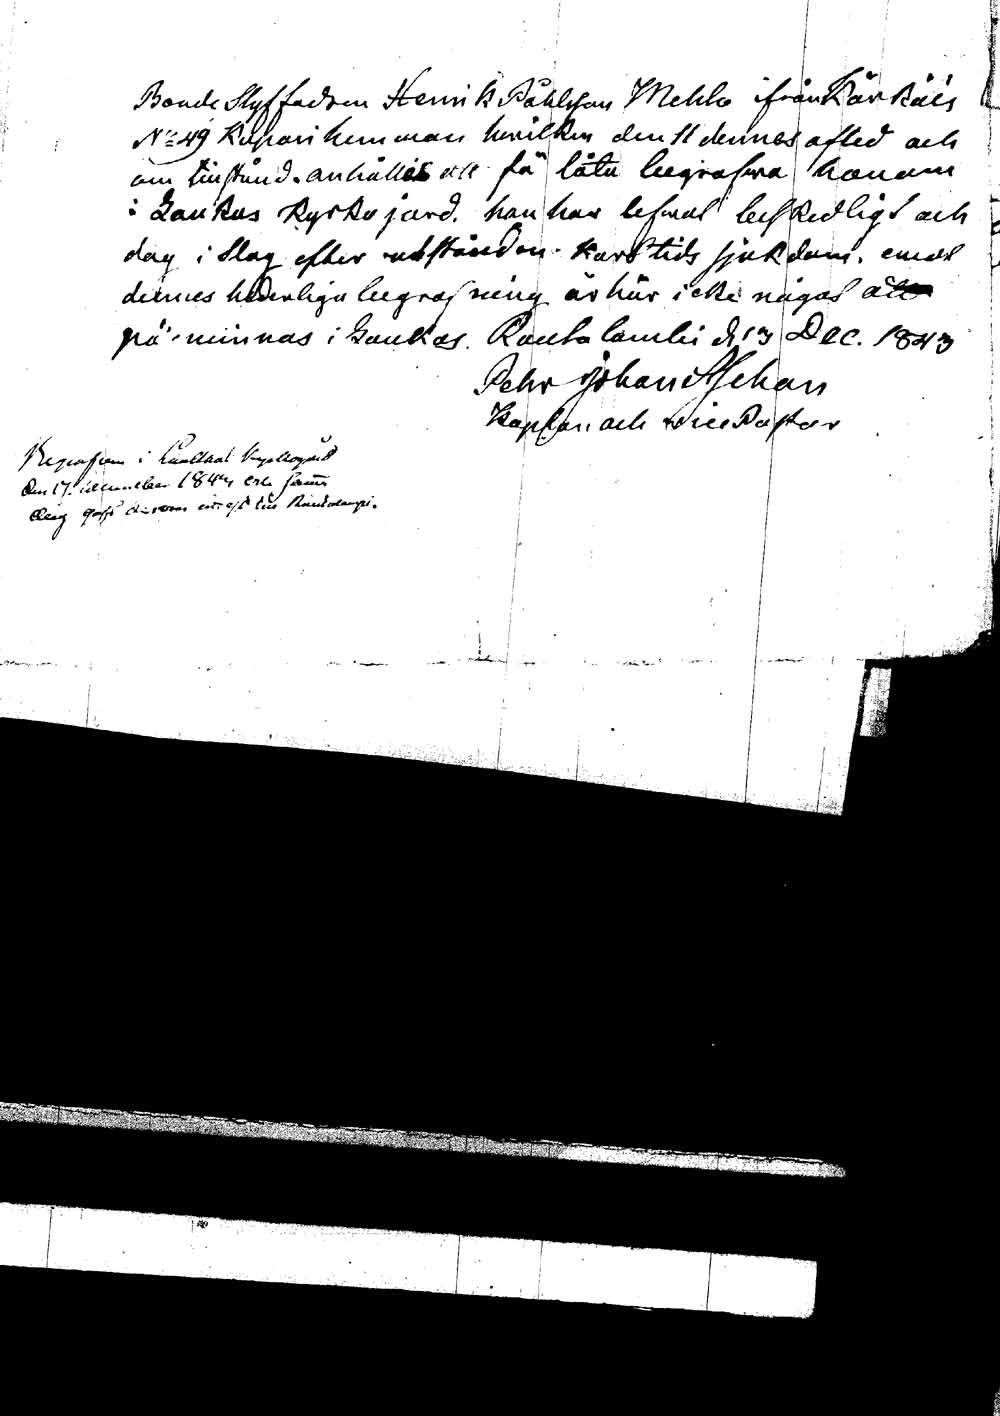 Bonde Styffadren Henrik Påhlsson Mehlo ifrån Kärkäis
No 49 Kapari hemman hvilken den 11 dennes afled och
om tillstånd. anhålles att få låta begrafwa honom
i Laukas Kyrkojord. han har lefwat beskedligt och
dog i Slag efter utstånden kort tids sjukdom. emot
dennes hederliga begrafning är här icke något att
på-minnas i Laukas. Rautalambi d 13 Dec. 1843
Pehr Johan
Kaplan och vice Pastor
i Kyrkogård
den 17. december 184 och samma
dag till Rautalampi.